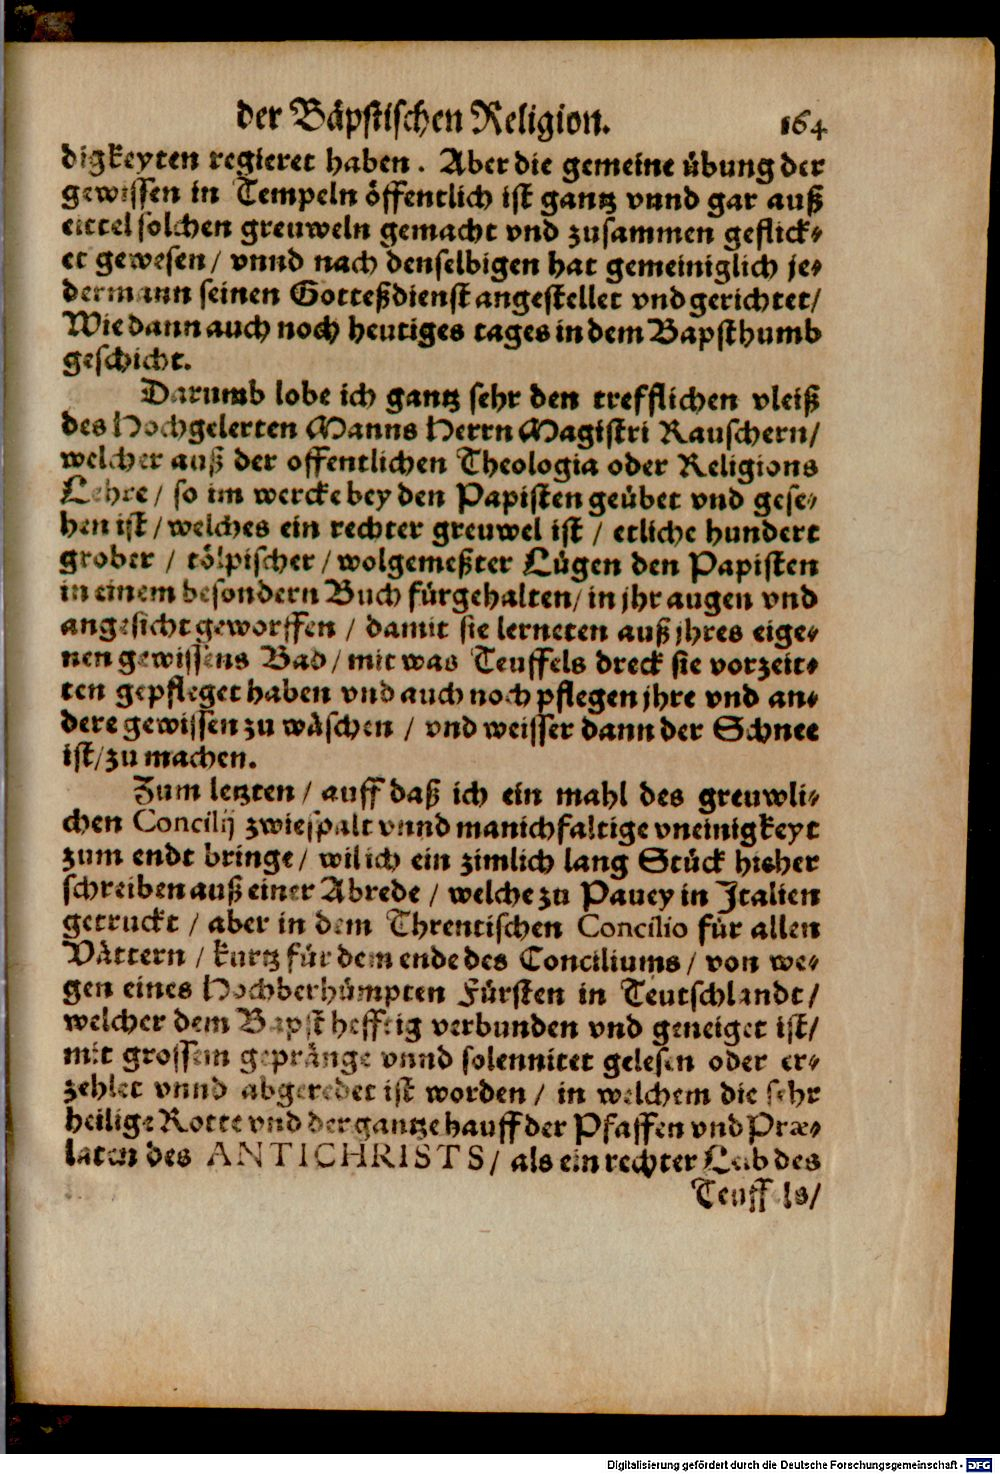 der Bäpstischen Religion. 164
digkeyten regieret haben. Aber die gemeine übung der
gewissen in Tempeln öffentlich ist gantz vnnd gar auß
eittel solchen greuweln gemacht vnd zusammen geflick-
et gewesen / vnnd nach denselbigen hat gemeiniglich je-
dermann seinen Gotteßdienst angestellet vnd gerichtet /
Wie dann auch noch heutiges tages in dem Bapsthumb
geschicht.
Darumb lobe ich gantz sehr den trefflichen vleiß
des Hochgelerten Manns Herrn Magistri Rauschern /
welcher auß der offentlichen Theologia oder Religions
Lehre / so im wercke bey den Papisten geübet vnd gese-
hen ist / welches ein rechter greuwel ist / etliche hundert
grober / tölpischer / wolgemeßter Lügen den Papisten
in einem besondern Buch fürgehalten / in jhr augen vnd
angesicht geworffen / damit sie lerneten auß jhres eige-
nen gewissens Bad / mit was Teuffels dreck sie vorzeit-
ten gepfleget haben vnd auch noch pflegen jhre vnd an-
dere gewissen zu wäschen / vnd weisser dann der Schnee
ist / zu machen.
Zum letzten / auff daß ich ein mahl des greuwli-
chen Concilij zwiespalt vnnd manichfaltige vneinigkeyt
zum endt bringe / wil ich ein zimlich lang Stück hieher
schreiben auß einer Abrede / welche zu Pauey in Italien
getruckt / aber in dem Threntischen Concilio für allen
Vättern / kurtz für dem ende des Conciliums / von we-
gen eines Hochberhümpten Fürsten in Teutschlandt /
welcher dem Bapst hefftig verbunden vnd geneiget ist /
mit grossem gepränge vnnd solennitet gelesen oder er-
zehlet vnnd abgeredet ist worden / in welchem die sehr
heilige Rotte vnd der gantze hauff der Pfaffen vnd Præ-
laten des ANTICHRISTS / als ein rechter Leib des
Teuffels /
Digitalisierung gefördert durch die Deutsche Forschungsgemeinschaft - DFG